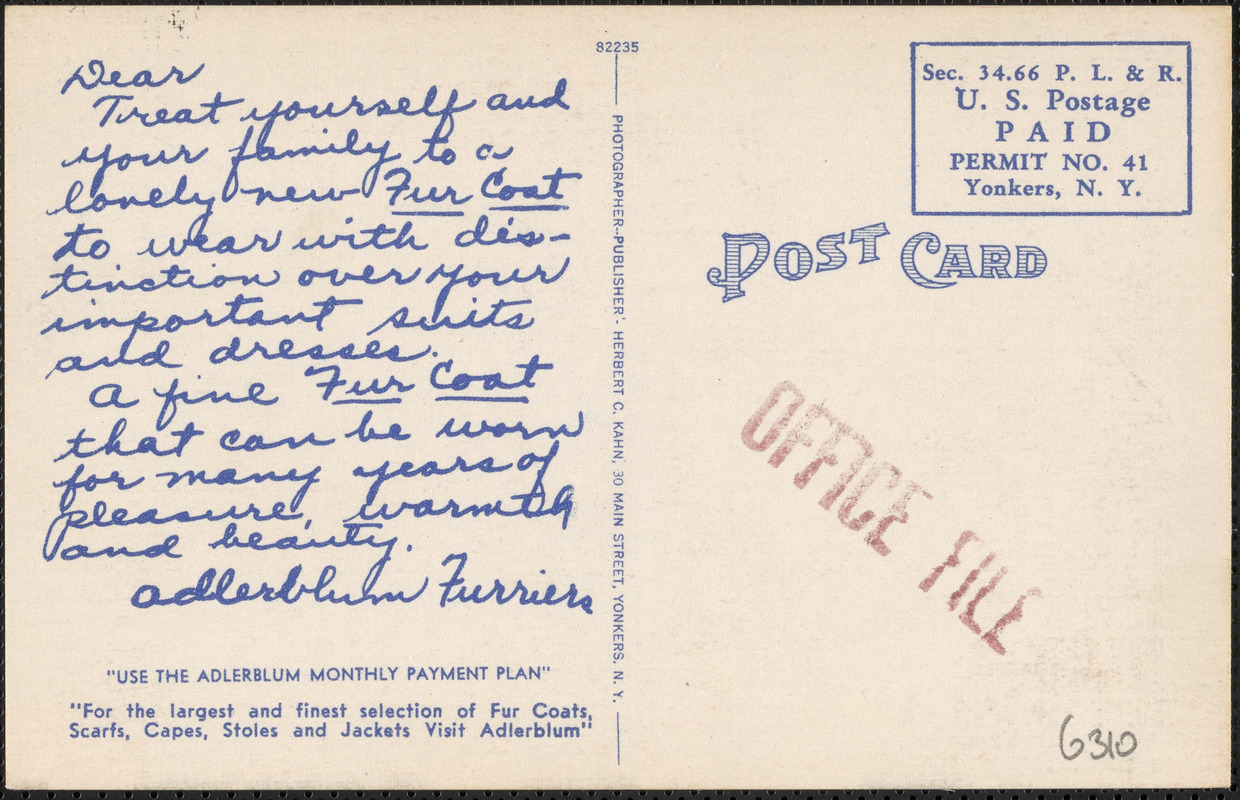 Dear
Treat yourself and
your family to a
lovely new Fur Coat
to wear with dis-
tinction over your
important suits
and dresses.
A fine Fur Coat
that can be worn
for many years of
pleasure, warmth
and beauty.
Adlerblum Furriers
"USE THE ADLERBLUM MONTHLY PAYMENT PLAN"
"For the largest and finest selection of Fur Coats,
Scarfs, Capes, Stoles and Jackets Visit Adlerblum"
82235
PHOTOGRAPHER--PUBLISHER- HERBERT C. KAHN, 30 MAIN STREET, YONKERS, N. Y.
Sec. 34.66 P. L. & R.
U. S. Postage
PAID
PERMIT NO. 41
Yonkers, N. Y.
POST CARD
OFFICE FILE
6310